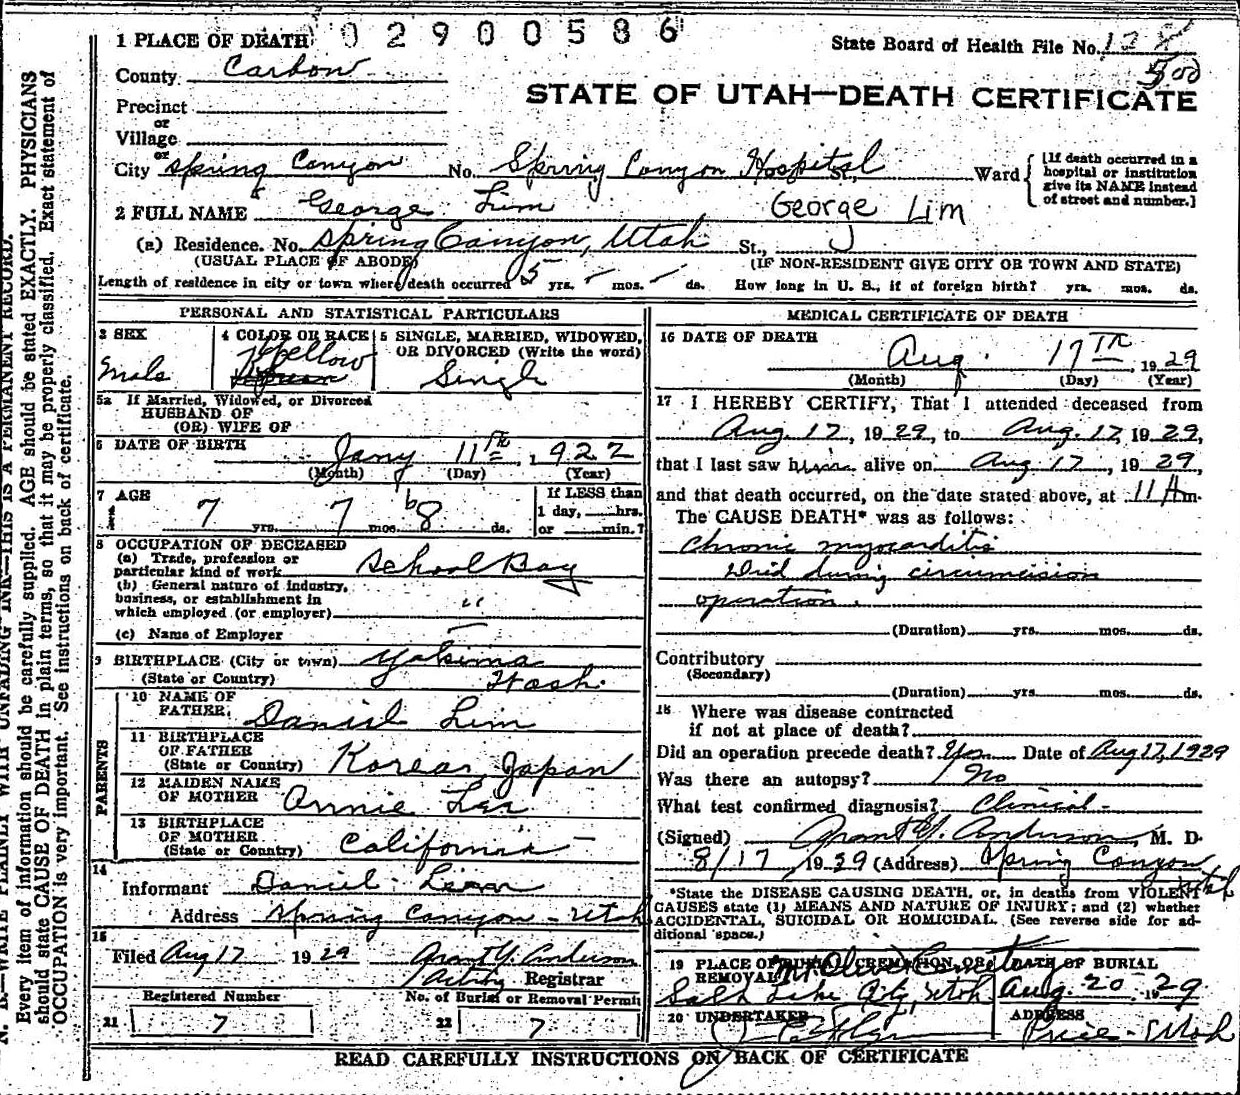 02900586
1 PLACE OF DEATH
State Board of Health File No. 128
500
County Carbon
STATE OF UTAH—DEATH CERTIFICATE
Precinct
or
Village
or
City Spring Canyon No. Spring Canyon Hospital St., Ward
[If death occurred in a hospital or institution give its NAME instead of street and number.]
2 FULL NAME George Lim George Lim
(a) Residence. No. Spring Canyon, Utah St.,
(USUAL PLACE OF ABODE) (IF NON-RESIDENT GIVE CITY OR TOWN AND STATE)
Length of residence in city or town where death occurred 5 yrs. – mos. – ds. How long in U. S., if of foreign birth? yrs. mos. ds.
PERSONAL AND STATISTICAL PARTICULARS
3 SEX
Male
4 COLOR OR RACE
Yellow
5 SINGLE, MARRIED, WIDOWED, OR DIVORCED (Write the word)
Single
5a If Married, Widowed, or Divorced
HUSBAND OF
(OR) WIFE OF
6 DATE OF BIRTH Jany 11TH, 1922
(Month) (Day) (Year)
7 AGE
7 yrs. 7 mos. 8 ds.
If LESS than
1 day, hrs.
or min.?
8 OCCUPATION OF DECEASED
(a) Trade, profession or
particular kind of work School Boy
(b) General nature of industry,
business, or establishment in
which employed (or employer) "
(c) Name of Employer –
9 BIRTHPLACE (City or town) Yakima
(State or Country) Wash.
PARENTS
10 NAME OF
FATHER Daniel Lim
11 BIRTHPLACE
OF FATHER
(State or Country) Korea, Japan
12 MAIDEN NAME
OF MOTHER Annie Lee
13 BIRTHPLACE
OF MOTHER
(State or Country) California –
14
Informant Daniel Lim
Address Spring Canyon - Utah
15
Filed Aug 17 1929 Grant Y. Anderson
Acting Registrar
Registered Number No. of Burial or Removal Permit
21 7 22 7
MEDICAL CERTIFICATE OF DEATH
16 DATE OF DEATH
Aug. 17TH, 1929
(Month) (Day) (Year)
17 I HEREBY CERTIFY, That I attended deceased from
Aug. 17, 1929, to Aug. 17, 1929,
that I last saw him alive on Aug 17, 1929,
and that death occurred, on the date stated above, at 11 Am.
The CAUSE DEATH* was as follows:
Chronic myocarditis
Died during circumcision
operation.
(Duration) yrs. mos. ds.
Contributory
(Secondary)
(Duration) yrs. mos. ds.
18 Where was disease contracted
if not at place of death?
Did an operation precede death? Yes Date of Aug 17, 1929
Was there an autopsy? No
What test confirmed diagnosis? Clinical -
(Signed) Grant Y. Anderson, M. D.
8/17, 1929 (Address) Spring Canyon Utah
*State the DISEASE CAUSING DEATH, or, in deaths from VIOLENT
CAUSES state (1) MEANS AND NATURE OF INJURY; and (2) whether
ACCIDENTAL, SUICIDAL OR HOMICIDAL. (See reverse side for ad-
ditional space.)
19 PLACE OF BURIAL, CREMATION, OR REMOVAL Mt Olivet Cemetery
Salt Lake City, Utah
DATE OF BURIAL
Aug. 20 1929
20 UNDERTAKER
ADDRESS
Price - Utah
READ CAREFULLY INSTRUCTIONS ON BACK OF CERTIFICATE
N. B.—WRITE PLAINLY WITH UNFADING INK—THIS IS A PERMANENT RECORD.
Every item of information should be carefully supplied. AGE should be stated EXACTLY. PHYSICIANS
should state CAUSE OF DEATH in plain terms, so that it may be properly classified. Exact statement of
OCCUPATION is very important. See instructions on back of certificate.